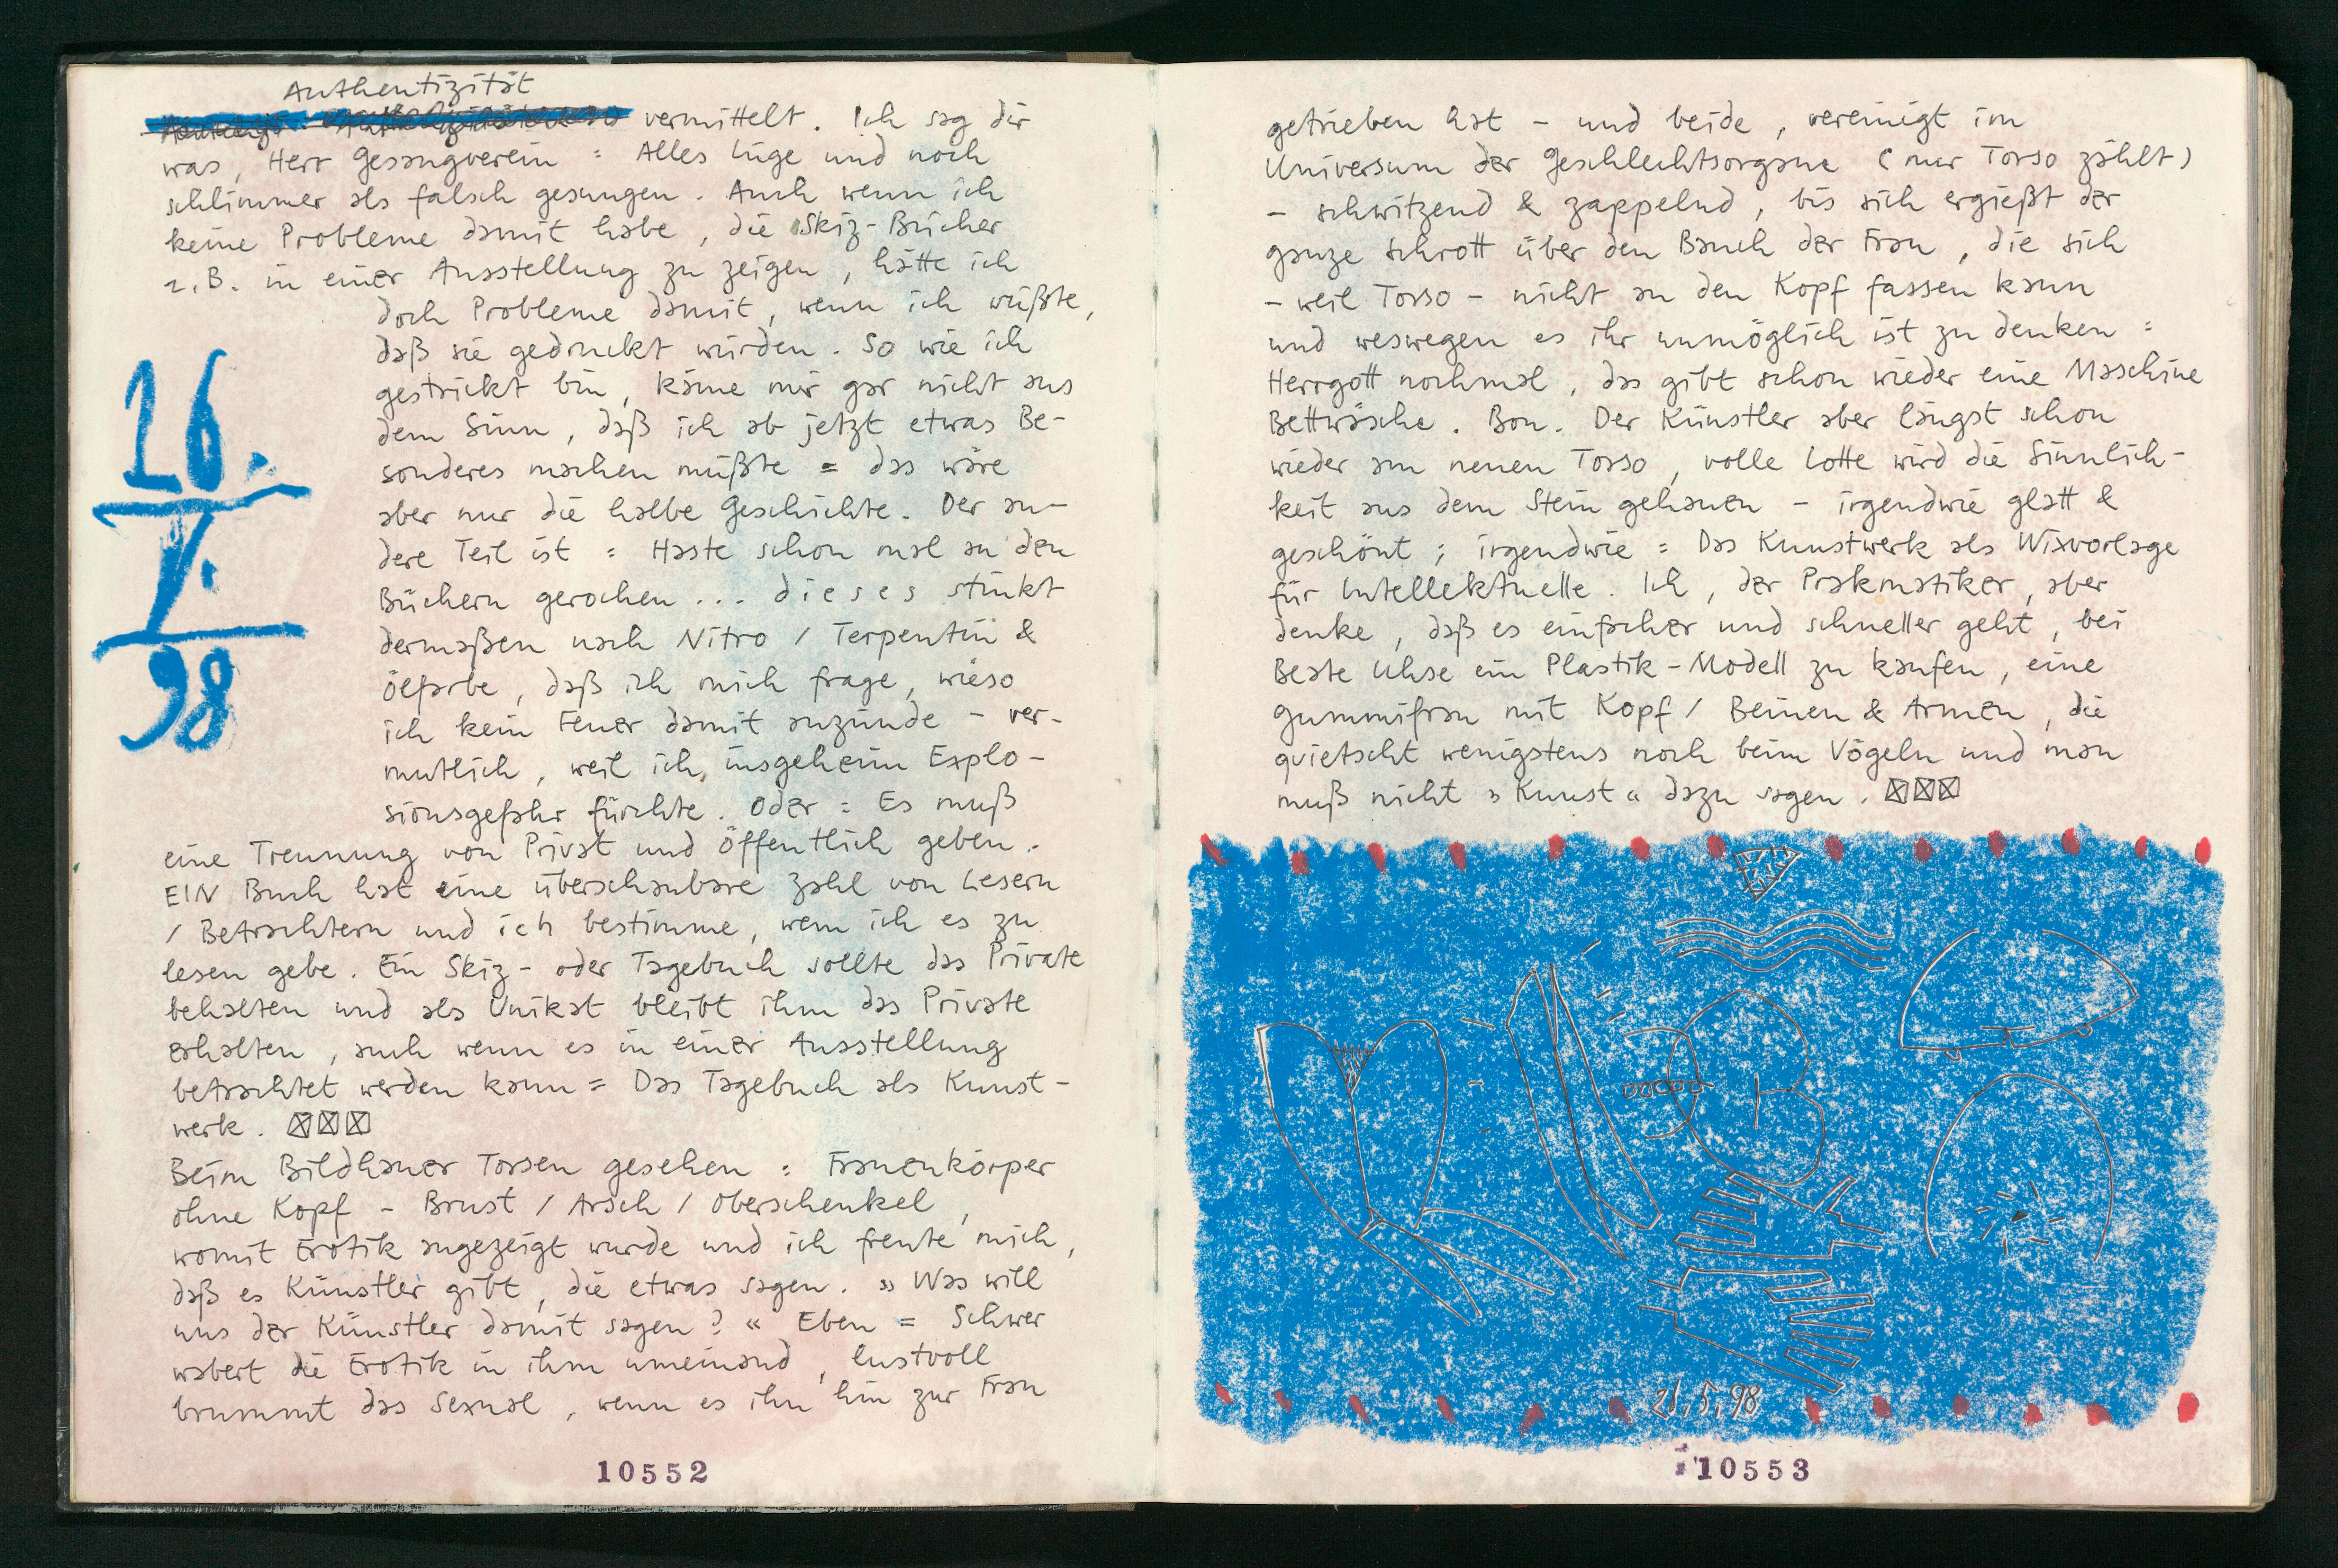 Authentizität
vermittelt. Ich sag dir
was, Herr Gesangverein: Alles Lüge und noch
schlimmer als falsch gesungen. Auch wenn ich
keine Probleme damit habe, die Skiz-Bücher
z.B. in einer Ausstellung zu zeigen, hätte ich
doch Probleme damit, wenn ich wüßte,
daß sie gedruckt würden. So wie ich
gestrickt bin, käme mir gar nicht aus
dem Sinn, daß ich ab jetzt etwas Be-
sonderes machen müßte = das wäre
aber nur die halbe Geschichte. Der an-
dere Teil ist: Haste schon mal an den
Büchern gerochen... dieses stinkt
dermaßen nach Nitro / Terpentin &
Ölfarbe, daß ich mich frage, wieso
ich kein Feuer damit anzünde - ver-
mutlich, weil ich, insgeheim Explo-
sionsgefahr fürchte. Oder: Es muß
eine Trennung von Privat und Öffentlich geben.
EIN Buch hat eine überschaubare Zahl von Lesern
/ Betrachtern und ich bestimme, wem ich es zu
lesen gebe. Ein Skiz- oder Tagebuch sollte das Private
behalten und als Unikat bleibt ihm das Private
erhalten, auch wenn es in einer Ausstellung
betrachtet werden kann = Das Tagebuch als Kunst-
werk. ☒☒☒
Beim Bildhauer Torsen gesehen: Frauenkörper
ohne Kopf - Brust / Arsch / Oberschenkel,
womit Erotik angezeigt wurde und ich freute mich,
daß es Künstler gibt, die etwas sagen. »Was will
uns der Künstler damit sagen?« Eben = Schwer
wabert die Erotik in ihm umeinand, lustvoll
brummt das Sexual, wenn es ihn hin zur Frau
16.
5.
98
10552
getrieben hat - und beide, vereinigt im
Universum der Geschlechtsorgane (nur Torso zählt)
- schwitzend & zappelnd, bis sich ergießt der
ganze Schrott über den Bauch der Frau, die sich
- weil Torso - nicht an den Kopf fassen kann
und weswegen es ihr unmöglich ist zu denken:
Herrgott nochmal, das gibt schon wieder eine Maschine
Bettwäsche. Bon. Der Künstler aber längst schon
wieder am neuen Torso, volle Lotte wird die Sinnlich-
keit aus dem Stein gehauen - irgendwie glatt &
geschönt; irgendwie: Das Kunstwerk als Wixvorlage
für Intellektuelle. Ich, der Prakmatiker, aber
denke, daß es einfacher und schneller geht, bei
Beate Uhse ein Plastik-Modell zu kaufen, eine
Gummifrau mit Kopf / Beinen & Armen, die
quietscht wenigstens noch beim Vögeln und man
muß nicht »Kunst« dazu sagen. ☒☒☒
21.5.98
10553